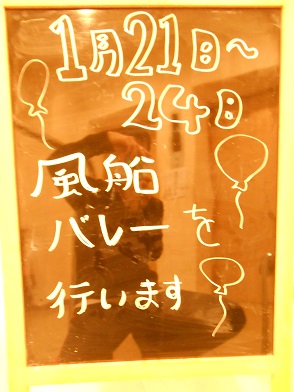 1月21日～
24日
風船
バレーを
行います